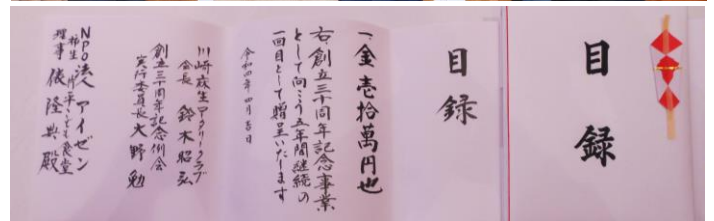 目録
目録
一金壱拾萬円也
右創立三十周年記念事業
として向こう五年間継続の
一回目として贈呈いたします
令和四年四月吉日
川崎麻生ロータリークラブ
会長 鈴木昭弘
創立三十周年記念例会
実行委員長 大野勉
NPO法人 アイゼン
柿生 片平こども食堂
理事 俵隆典殿